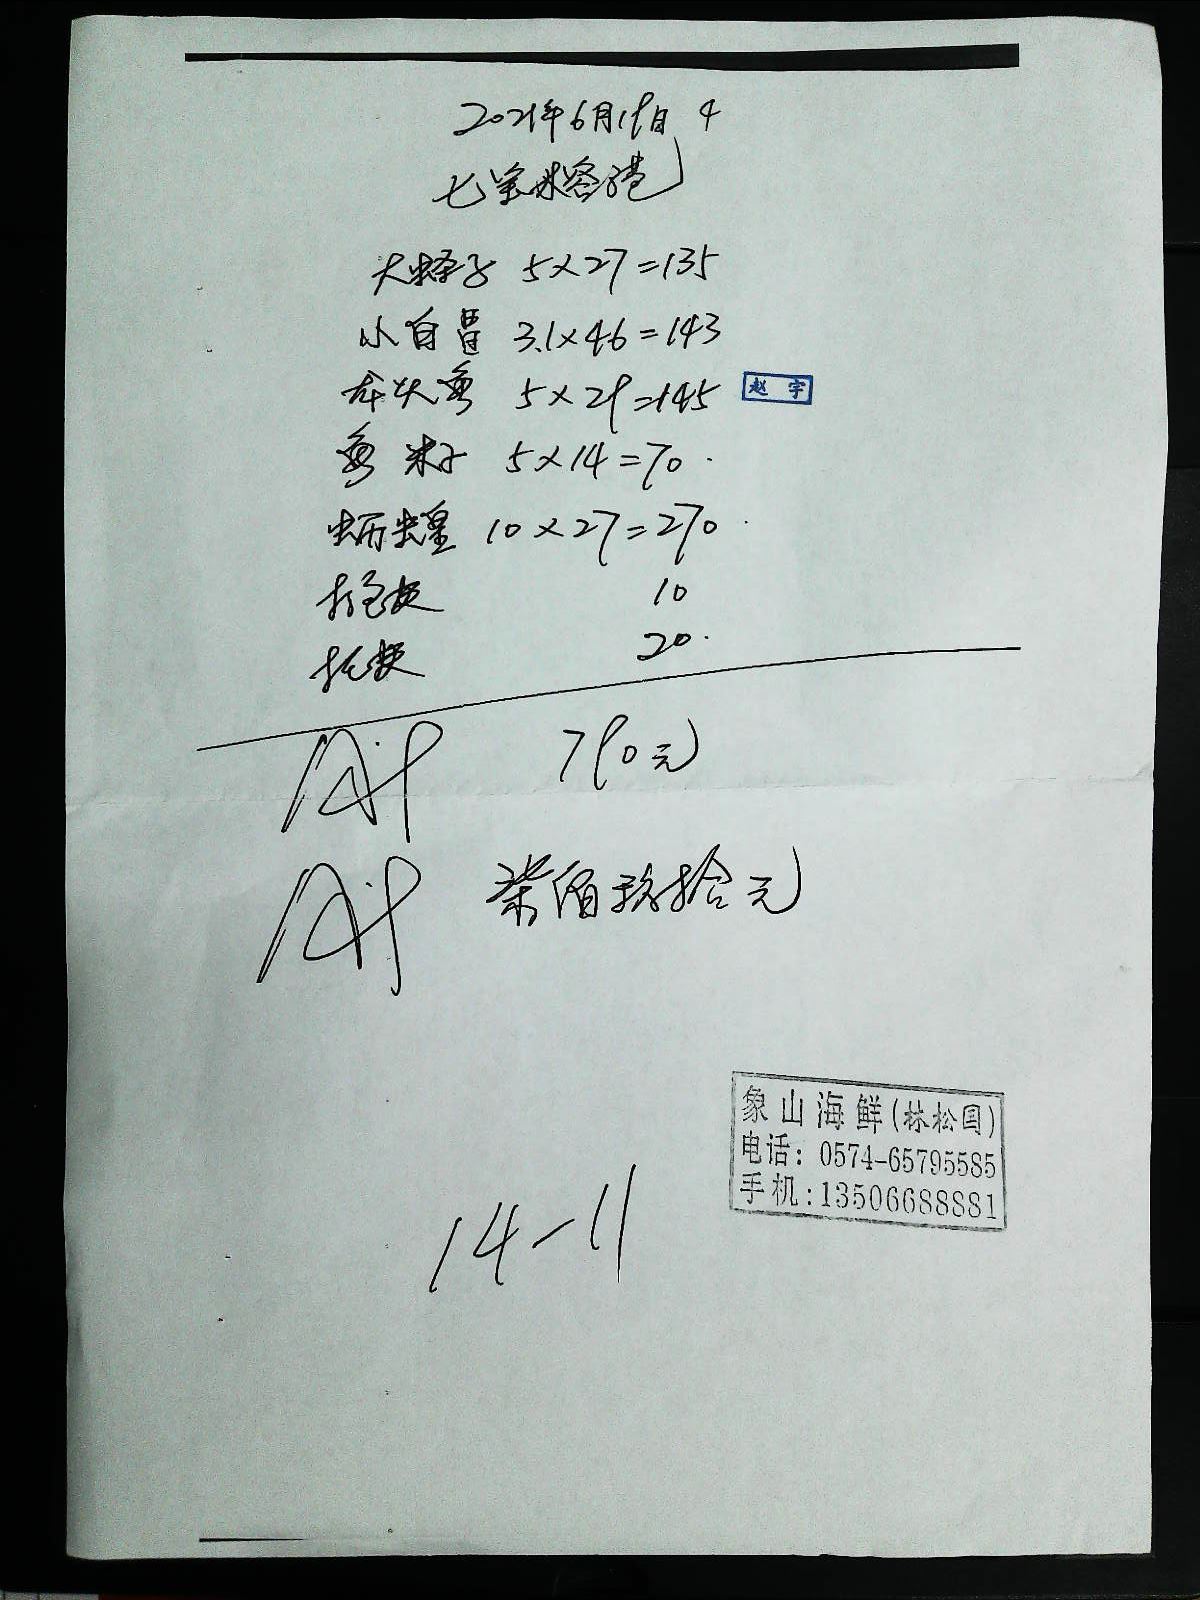 2021年6月19日 4
七宝米客港
大蛏子 5×27=135
小白鲳 3.1×46=143
龙头鱼 5×29=145
赵宇
鱼米子 5×14=70
蛎蝗 10×27=270
打包费 10
托费 20
790元
柒佰玖拾元
象山海鲜(林松国)
电话: 0574-65795585
手机:13506688881
14-11